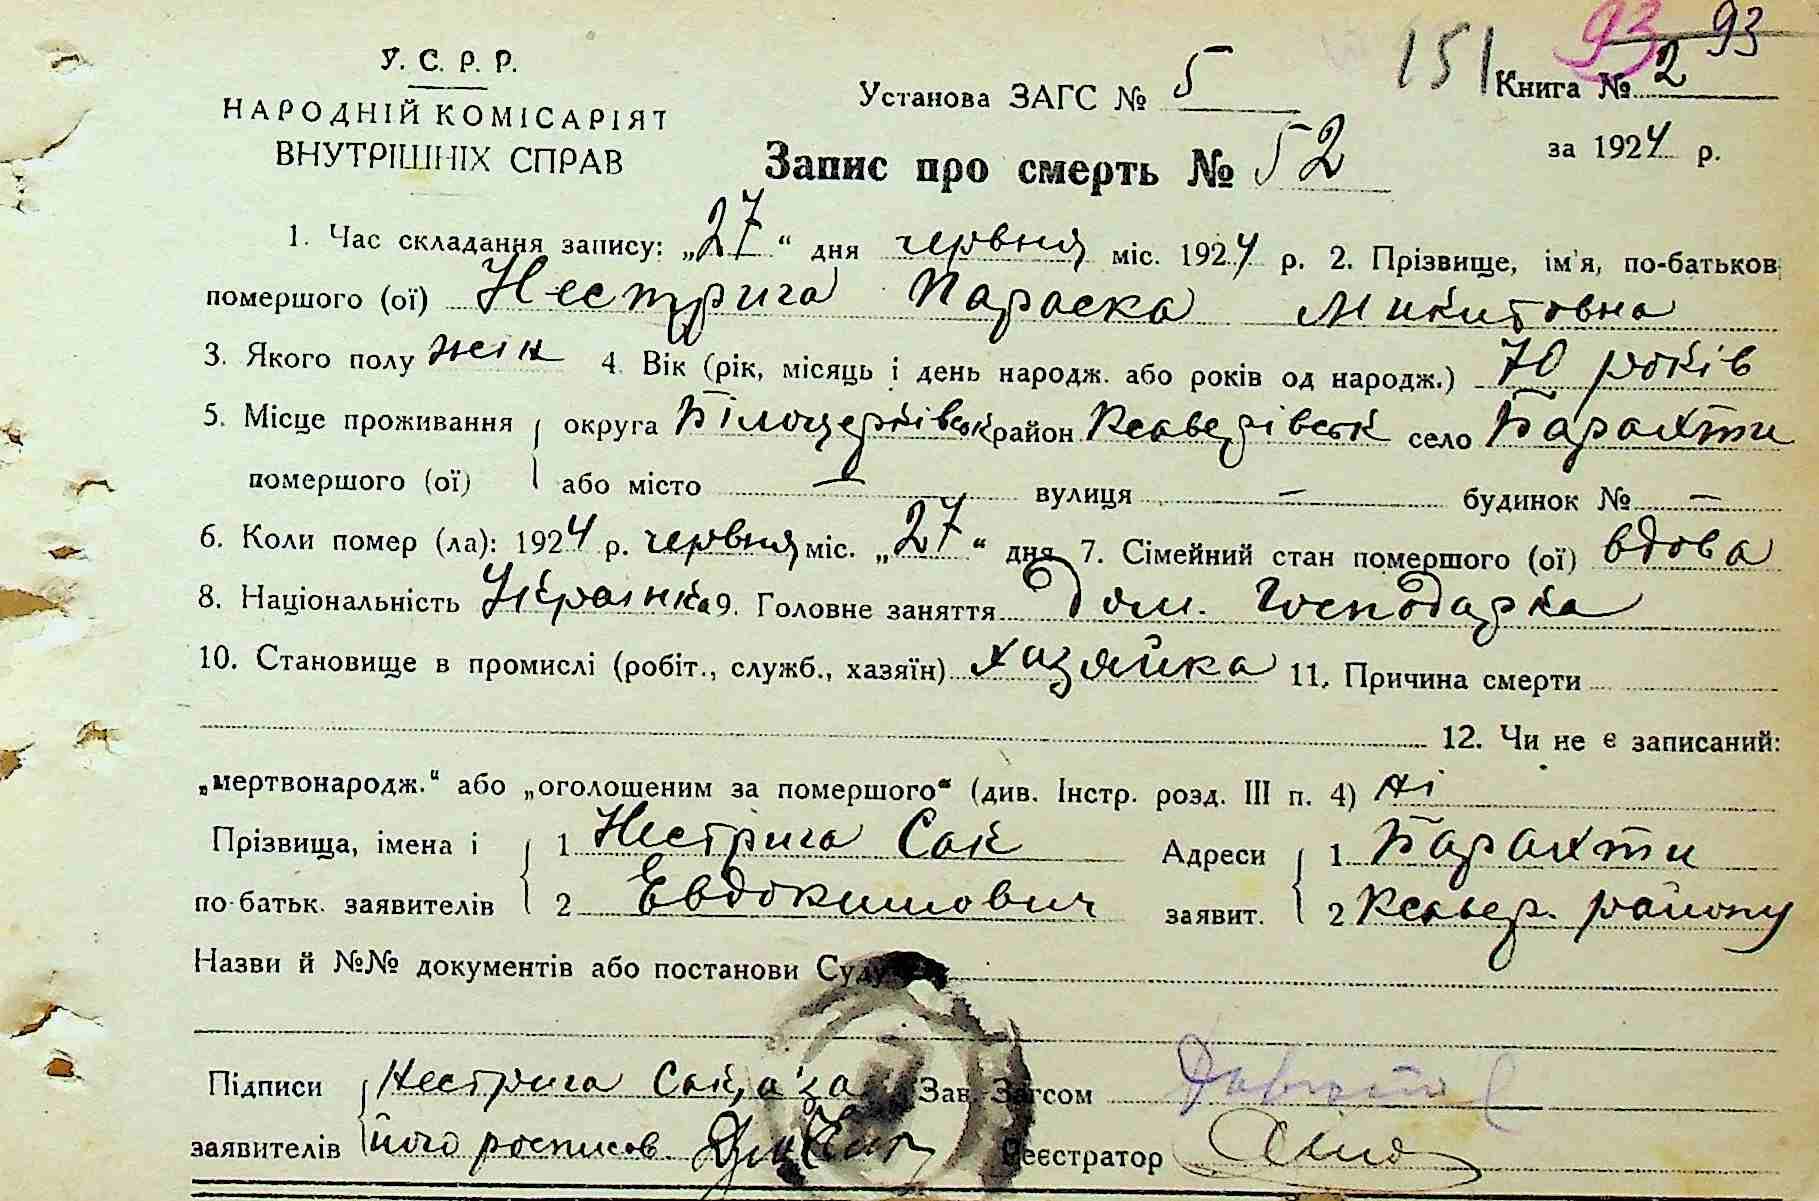 93 93
151
У. С. Р. Р.
НАРОДНІЙ КОМІСАРІЯТ
ВНУТРІШНІХ СПРАВ
Установа ЗАГС № 5
Книга № 2
за 1924 р.
Запис про смерть № 52
1. Час складання запису: „27“ дня червня міс. 1924 р. 2. Прізвище, ім'я, по-батькові
помершого (ої) Нестрига Параска Микитовна
3. Якого полу жін 4. Вік (рік, місяць і день народж. або років од народж.) 70 років
5. Місце проживання округа Білоцерківськ район Ксаверівськ село Барахти
помершого (ої) або місто — вулиця — будинок № —
6. Коли помер (ла): 1924 р. червня міс. „27“ дня 7. Сімейний стан помершого (ої) вдова
8. Національність Українка 9. Головне заняття Дом. Господарка
10. Становище в промислі (робіт., служб., хазяїн) хазяйка 11. Причина смерти
12. Чи не є записаний:
„мертвонародж.“ або „оголошеним за помершого“ (див. Інстр. розд. III п. 4) ні
Прізвища, імена і 1 Нестрига Сак Адреси 1 Барахти
по-батьк. заявителів 2 Евдокимович заявит. 2 Ксавер. району
Назви й №№ документів або постанови Суду
Підписи Нестрига Сак, а за Зав. Загсом
заявителів його росписов. Реєстратор